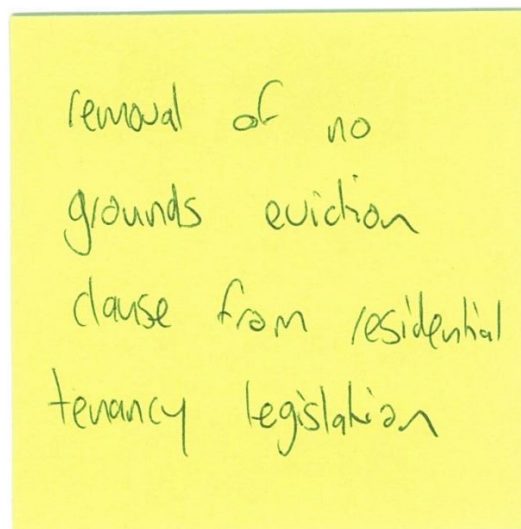 removal of no
grounds eviction
clause from residential
tenancy legislation